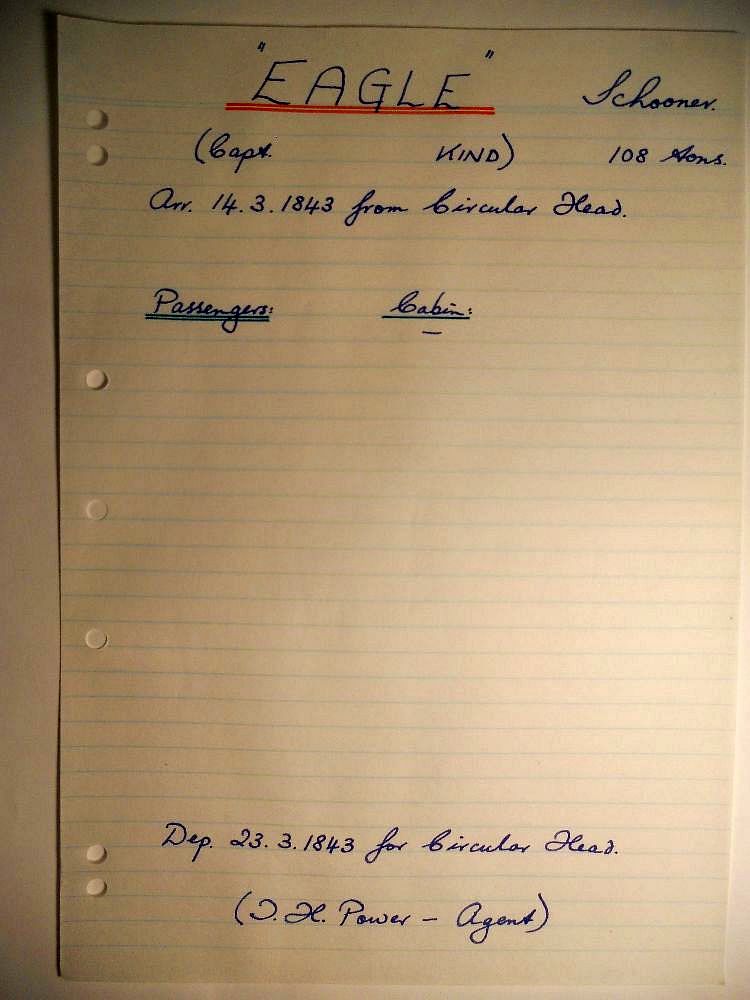 "EAGLE" Schooner.
(Capt. KIND) 108 tons.
Arr. 14.3.1843 from Circular Head.
Passengers: Cabin:
—
Dep. 23.3.1843 for Circular Head.
(T. H. Power – Agent)